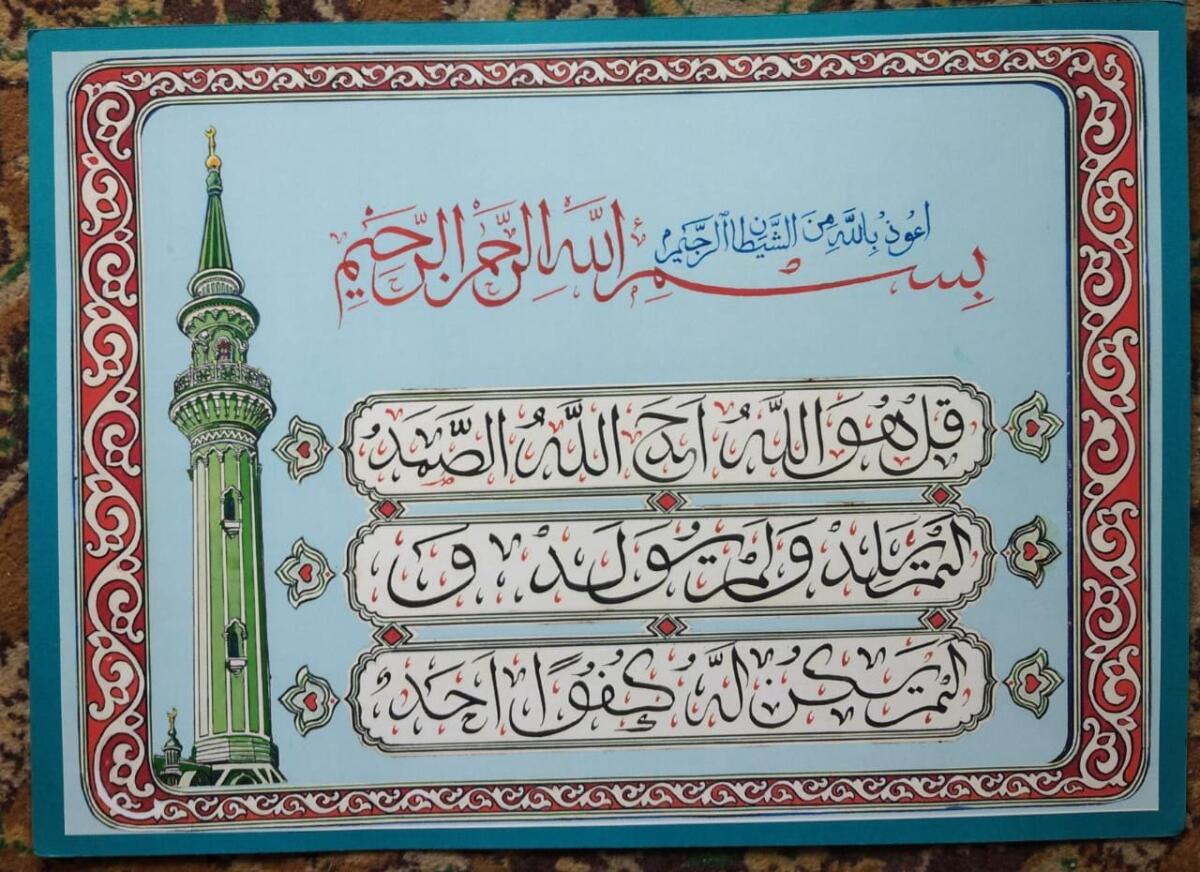 اعوذ بالله من الشيطان الرجيم
بِسْمِ اللهِ الرَّحْمٰنِ الرَّحِيمِ
قل هُوَ اللَّهُ اَحَد اللَّهُ الصَّمَدُ
لم يلد ولم يولد و
لم يكن لَهُ كُفُوًا احد